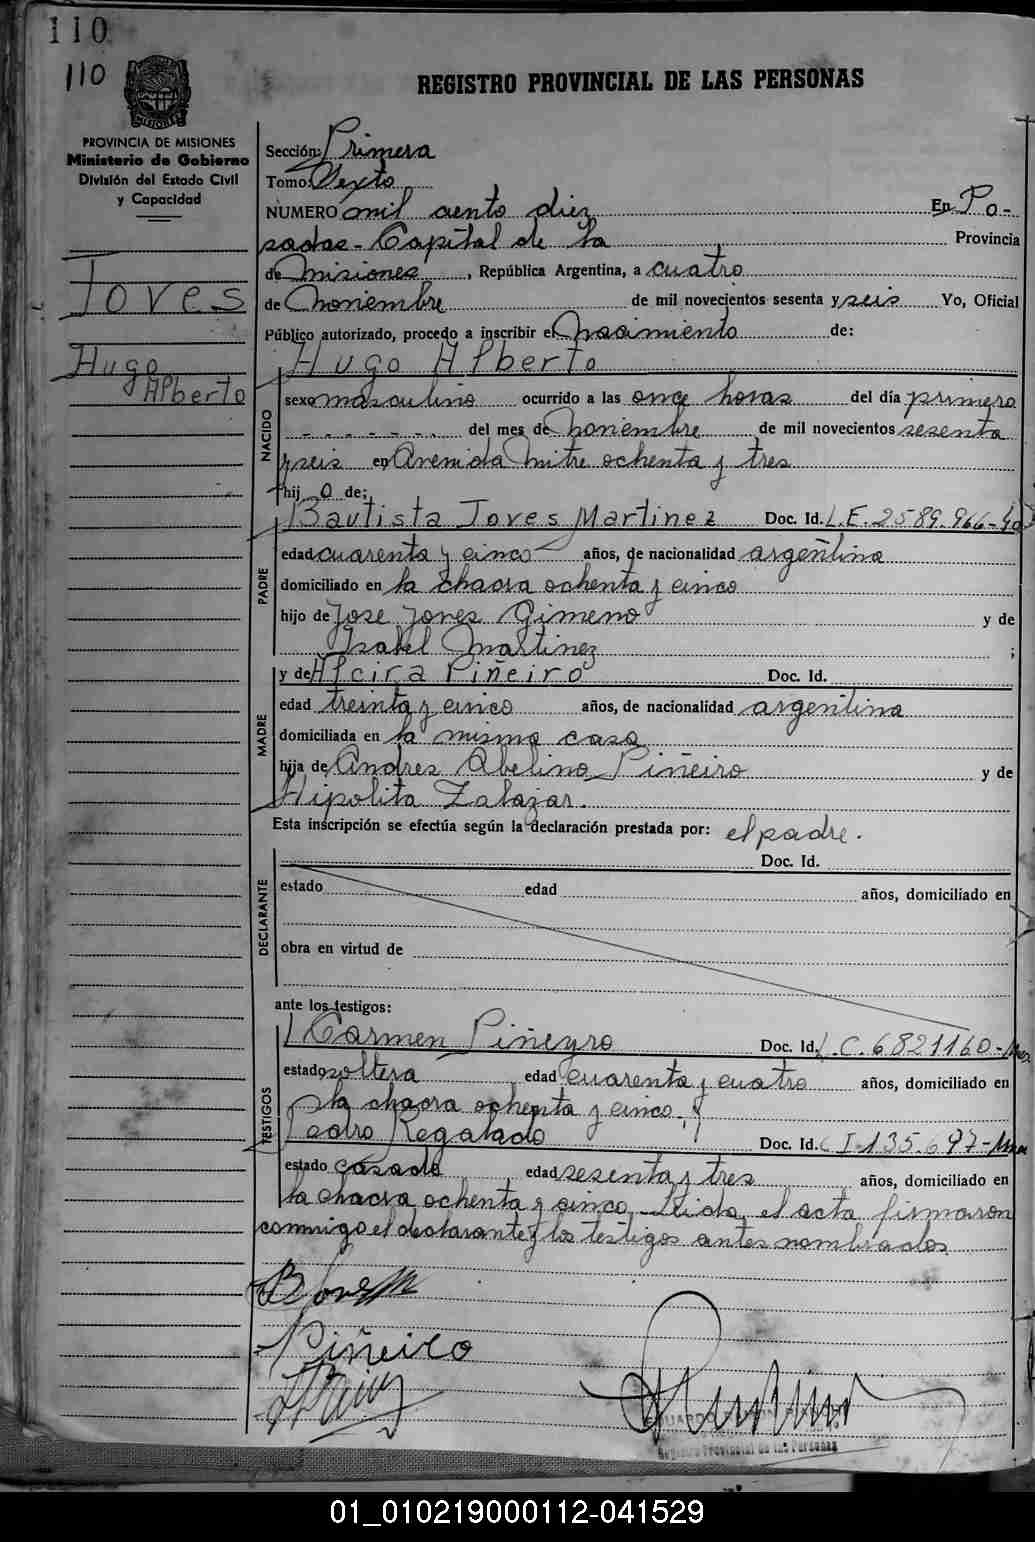 110
110
REGISTRO PROVINCIAL DE LAS PERSONAS
MISIONES
PROVINCIA DE MISIONES
Ministerio de Gobierno
División del Estado Civil
y Capacidad
Toves
Hugo
Alberto
Sección: Primera
Tomo: Sexto
NUMERO mil ciento diez En Po-
sadas - Capital de la Provincia
de Misiones, República Argentina, a cuatro
de Noviembre de mil novecientos sesenta y seis Yo, Oficial
Público autorizado, procedo a inscribir el Nacimiento de:
Hugo Alberto
NACIDO
sexo masculino ocurrido a las once horas del día primero
del mes de Noviembre de mil novecientos sesenta
y seis en Avenida Mitre ochenta y tres
hij o de:
PADRE
Bautista Toves Martinez Doc. Id. L.E. 2589.966-
edad cuarenta y cinco años, de nacionalidad argentina
domiciliado en la chacra ochenta y cinco
hijo de Jose Toves Gimeno y de
Isabel Martinez ;
MADRE
y de Alcira Piñeiro Doc. Id.
edad treinta y cinco años, de nacionalidad argentina
domiciliada en la misma casa
hija de Andres Abelino Piñeiro y de
Hipolita Zalazar.
Esta inscripción se efectúa según la declaración prestada por: el padre.
DECLARANTE
Doc. Id.
estado edad años, domiciliado en
obra en virtud de
ante los testigos:
TESTIGOS
Carmen Piñeyro Doc. Id. L.C. 6821160-
estado soltera edad cuarenta y cuatro años, domiciliado en
la chacra ochenta y cinco, y
Pedro Regalado Doc. Id. C I-135.697-
estado casado edad sesenta y tres años, domiciliado en
la chacra ochenta y cinco. Leida el acta firmaron
conmigo el declarante y los testigos antes nombrados
Piñeiro
Registro Provincial de las Personas
01_010219000112-041529